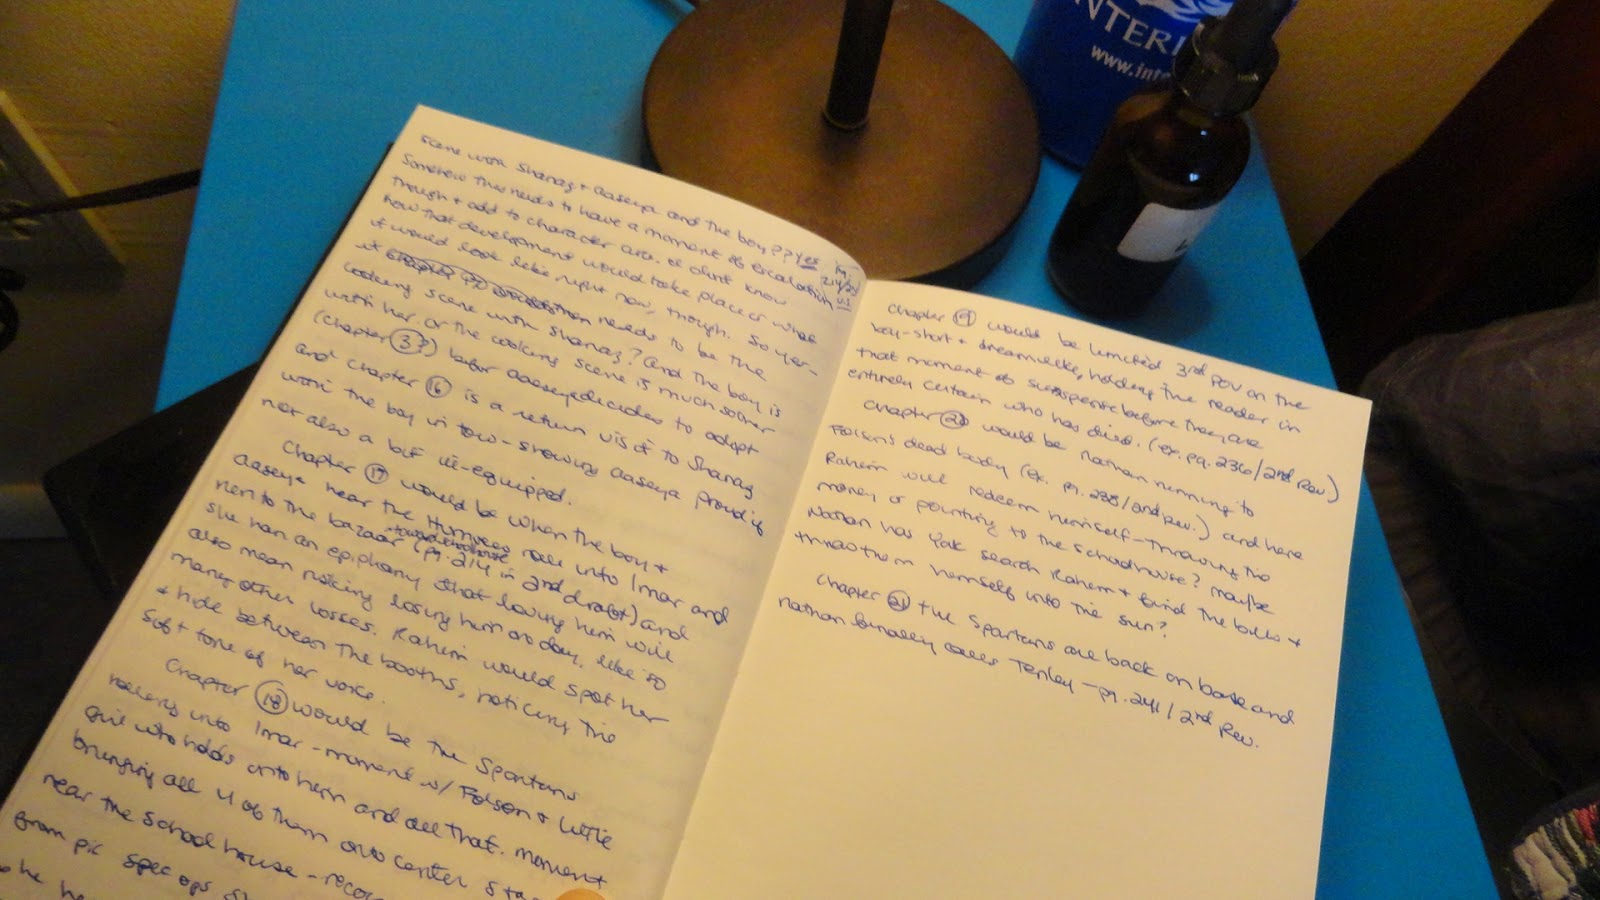 Scene with Shanaz + Aaseya and the boy?? Yes
Somehow this needs to have a moment of escalation
though + add to character arc. I don't know
how that development would take place or what
it would look like right now, though. So yer-
it needs to be the
cooking scene with Shanaz? and the boy is
with her or the cooking scene is much sooner
(Chapter 3?) before Aaseya decides to adopt
and Chapter 16 is a return visit to Shanaz
with the boy in tow-showing Aaseya proud if
not also a bit ill-equipped.
Chapter 17 would be when the boy +
Aaseya hear the Humvees roll into Imar and
run to the bazaar (pg. 214 in 2nd draft) and
toward schoolhouse
she has an epiphany that loving him will
also mean risking losing him one day, like so
many other losses. Rahim would spot her
+ hide between the booths, noticing the
soft + tone of her voice.
Chapter 18 would be the Spartans
rolling into Imar - moment w/ Folson + little
girl who holds onto him and all that. Moment
bringing all 4 of them onto center
near the schoolhouse -
from pic spec ops
he
Chapter 19 would be limited 3rd POV on the
boy-short + dreamlike, holding the reader in
that moment of suspense before they are
entirely certain who has died. (ex. pg. 236/2nd Rev.)
Chapter 20 would be Nathan running to
Folson's dead body (ex. pg. 238/2nd Rev.) and here
Rahim will redeem himself-throwing the
money or pointing to the schoolhouse? Maybe
Nathan has Yak search Rahim + find the bills +
throw them himself into the sun?
Chapter 21 the Spartans are back on base and
Nathan finally calls Tenley - pg. 241/2nd Rev.
INTER
www.inte